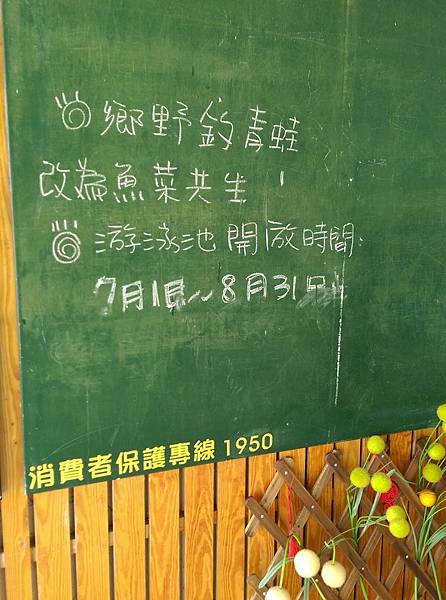 鄉野釣青蛙
改為魚菜共生!
游泳池開放時間:
7月1日~8月31日
消費者保護專線 1950